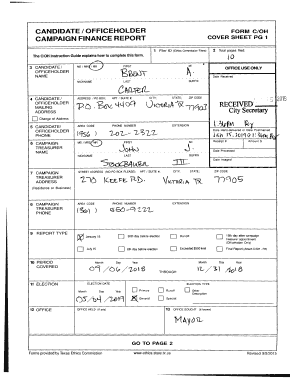 CANDIDATE / OFFICEHOLDER
CAMPAIGN FINANCE REPORT
FORM C/OH
COVER SHEET PG 1
The C/OH Instruction Guide explains how to complete this form.
1 Filer ID (Ethics Commission Filers)
2 Total pages filed:
10
3 CANDIDATE / OFFICEHOLDER NAME
MS / MRS / MR FIRST MI
BRENT A.
NICKNAME LAST SUFFIX
CARTER
OFFICE USE ONLY
Date Received
4 CANDIDATE / OFFICEHOLDER MAILING ADDRESS
Change of Address
ADDRESS / PO BOX; APT / SUITE #; CITY; STATE; ZIP CODE
P.O. Box 4409 VICTORIA TX 77903
RECEIVED
City Secretary
5 CANDIDATE / OFFICEHOLDER PHONE
AREA CODE PHONE NUMBER EXTENSION
202-2322
Date Hand-delivered or Date Postmarked
6 CAMPAIGN TREASURER NAME
MS / MRS / MR FIRST MI
JOHN
NICKNAME LAST SUFFIX
STOCKBAUER III
Receipt # Amount $
Date Processed
Date Imaged
7 CAMPAIGN TREASURER ADDRESS
(Residence or Business)
STREET ADDRESS (NO PO BOX PLEASE); APT / SUITE #; CITY; STATE; ZIP CODE
270 KEEFE RD. VICTORIA TX 77905
8 CAMPAIGN TREASURER PHONE
AREA CODE PHONE NUMBER EXTENSION
(361) 550-9222
9 REPORT TYPE
January 15
30th day before election
Runoff
15th day after campaign treasurer appointment (Officeholder Only)
July 15
8th day before election
Exceeded $500 limit
Final Report (Attach C/OH - FR)
10 PERIOD COVERED
Month Day Year
09/06/2018 THROUGH 12/31/2018
11 ELECTION
ELECTION DATE
Month Day Year
05/04/2019
ELECTION TYPE
Primary
Runoff
Other Description
General
Special
12 OFFICE
OFFICE HELD (if any)
13 OFFICE SOUGHT (if known)
MAYOR
GO TO PAGE 2
Forms provided by Texas Ethics Commission
www.ethics.state.tx.us
Revised 9/8/2015